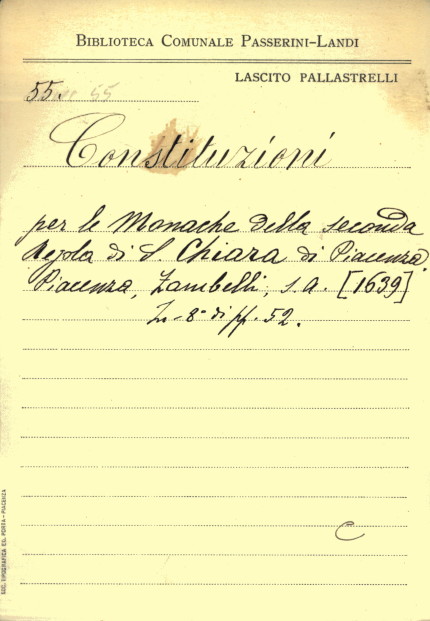 BIBLIOTECA COMUNALE PASSERINI-LANDI
LASCITO PALLASTRELLI
55.
Constituzioni
per le Monache della seconda
Regola di S. Chiara di Piacenza.
Piacenza, Zambelli, s.a. [1639]
In-8° di pp. 52.
C
SOC. TIPOGRAFICA ED. PORTA - PIACENZA